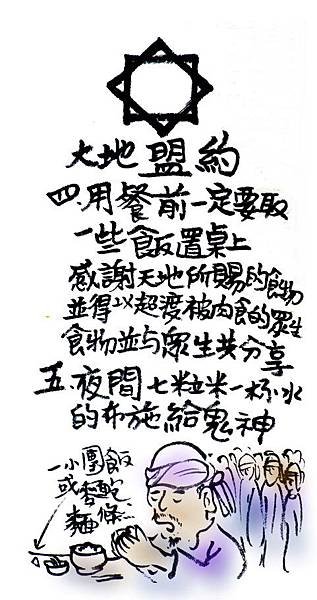 大地盟約
四、用餐前一定要取
一些飯置桌上
感謝天地所賜的食物
並得以超渡被肉食的眾生
食物並与眾生共分享
五、夜間七粒米一杯水
的布施給鬼神
一小團飯
或麥麭
麵條…